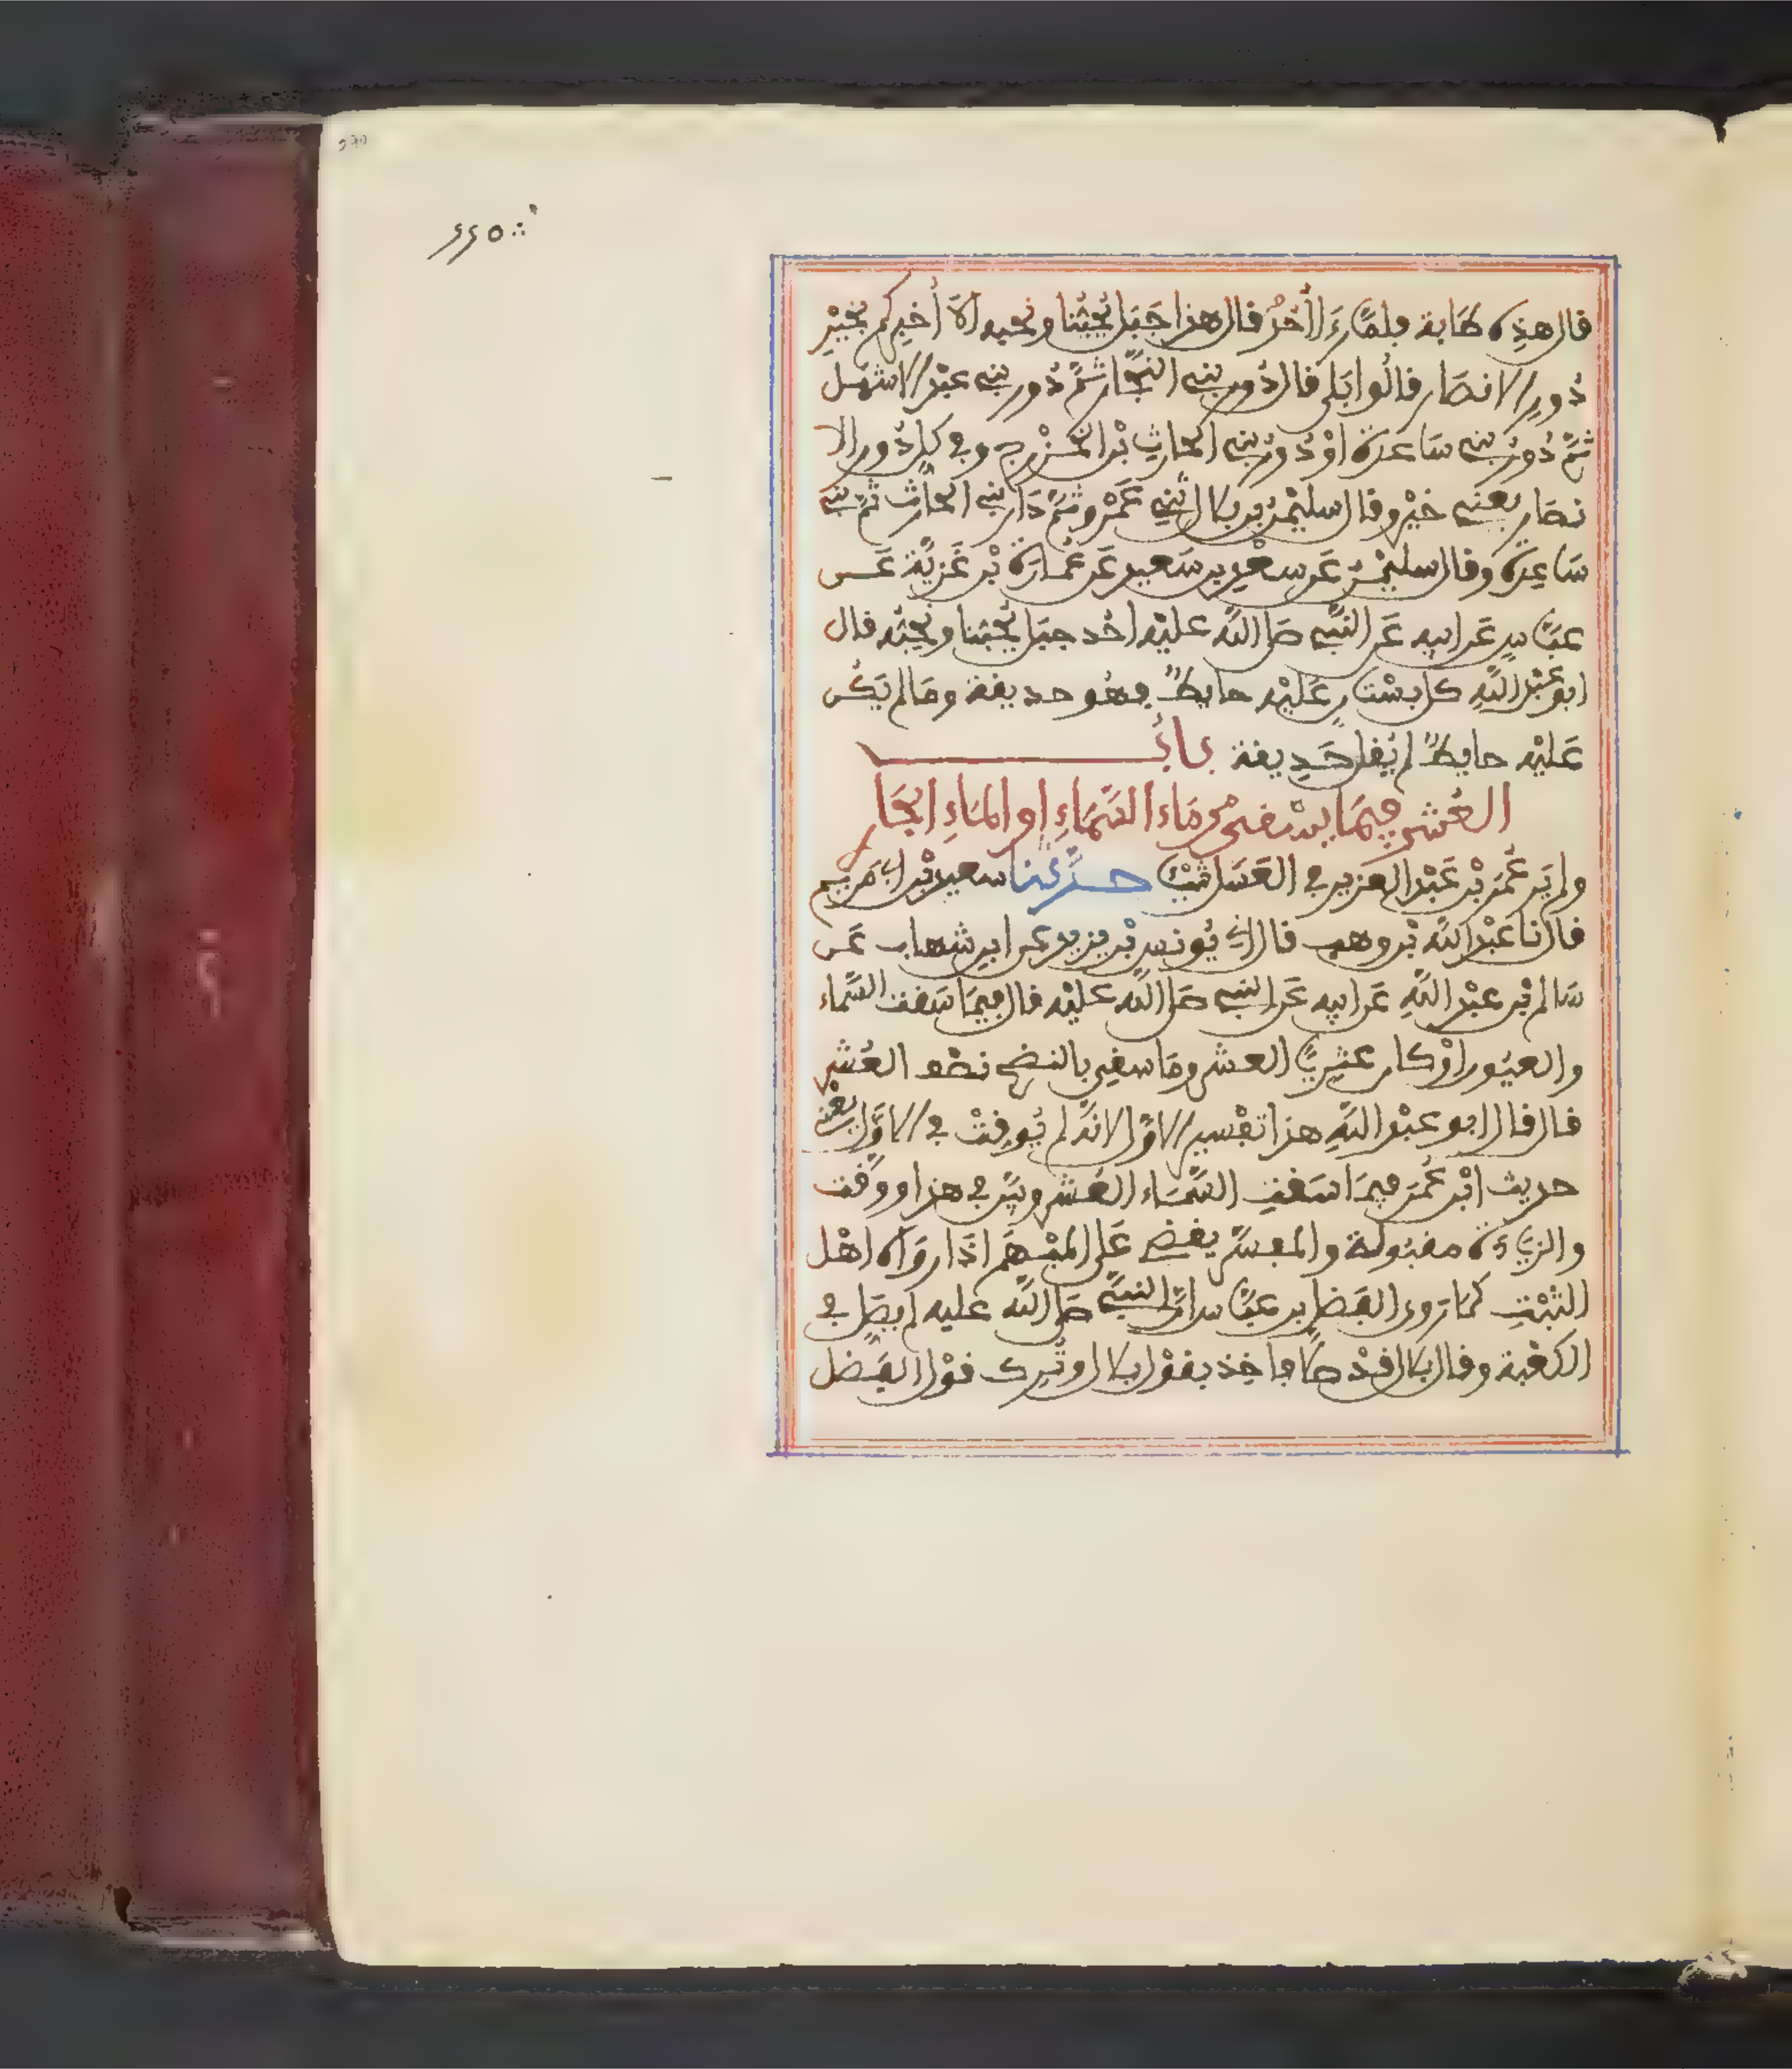 قال هذه طابة فلما رءا أحد قال هذا جبل يحبنا ونحبه ألا أخبركم بخير
دور الانصار قالوا بلى قال دور بني النجار ثم دور بني عبد الاشهل
ثم دور بني ساعدة او دور بني الحارث بن الخزرج وفي كل دور الا
نصار يعني خير وقال سليمن بن بلال ثني عمرو ثم دار بني الحارث ثم بني
ساعدة وقال سليمن عن سعد بن سعيد عن عمارة بن غزية عن
عباس عن ابيه عن النبي صلى الله عليه أحد جبل يحبنا ونحبه قال
ابو عبد الله كل بستان عليه حايط فهو حديقة وما لم يكن
عليه حايط لم يقل حديقة باب
العشر فيما يسقى من ماء السماء او الماء الجا
ري
ولم ير عمر بن عبد العزيز في العسل شيئا حدثنا سعيد بن ابي مريم
قال انا عبد الله بن وهب قال اني يونس بن يزيد عن ابن شهاب عن
سالم بن عبد الله عن ابيه عن النبي صلى الله عليه قال فيما سقت السماء
والعيون او كان عثريا العشر وما سقي بالنضح نصف العشر
قال قال ابو عبد الله هذا تفسير الاول لانه لم يوقت في الاول يعني
حديث ابن عمر فيما سقت السماء العشر وبين في هذا ووقت
والزيادة مقبولة والمفسر يقضي على المبهم اذا رواه اهل
الثبت كما روى الفضل بن عباس ان النبي صلى الله عليه لم يصل في
الكعبة وقال بلال قد صلى فاخذ بقول بلال وترك قول الفضل